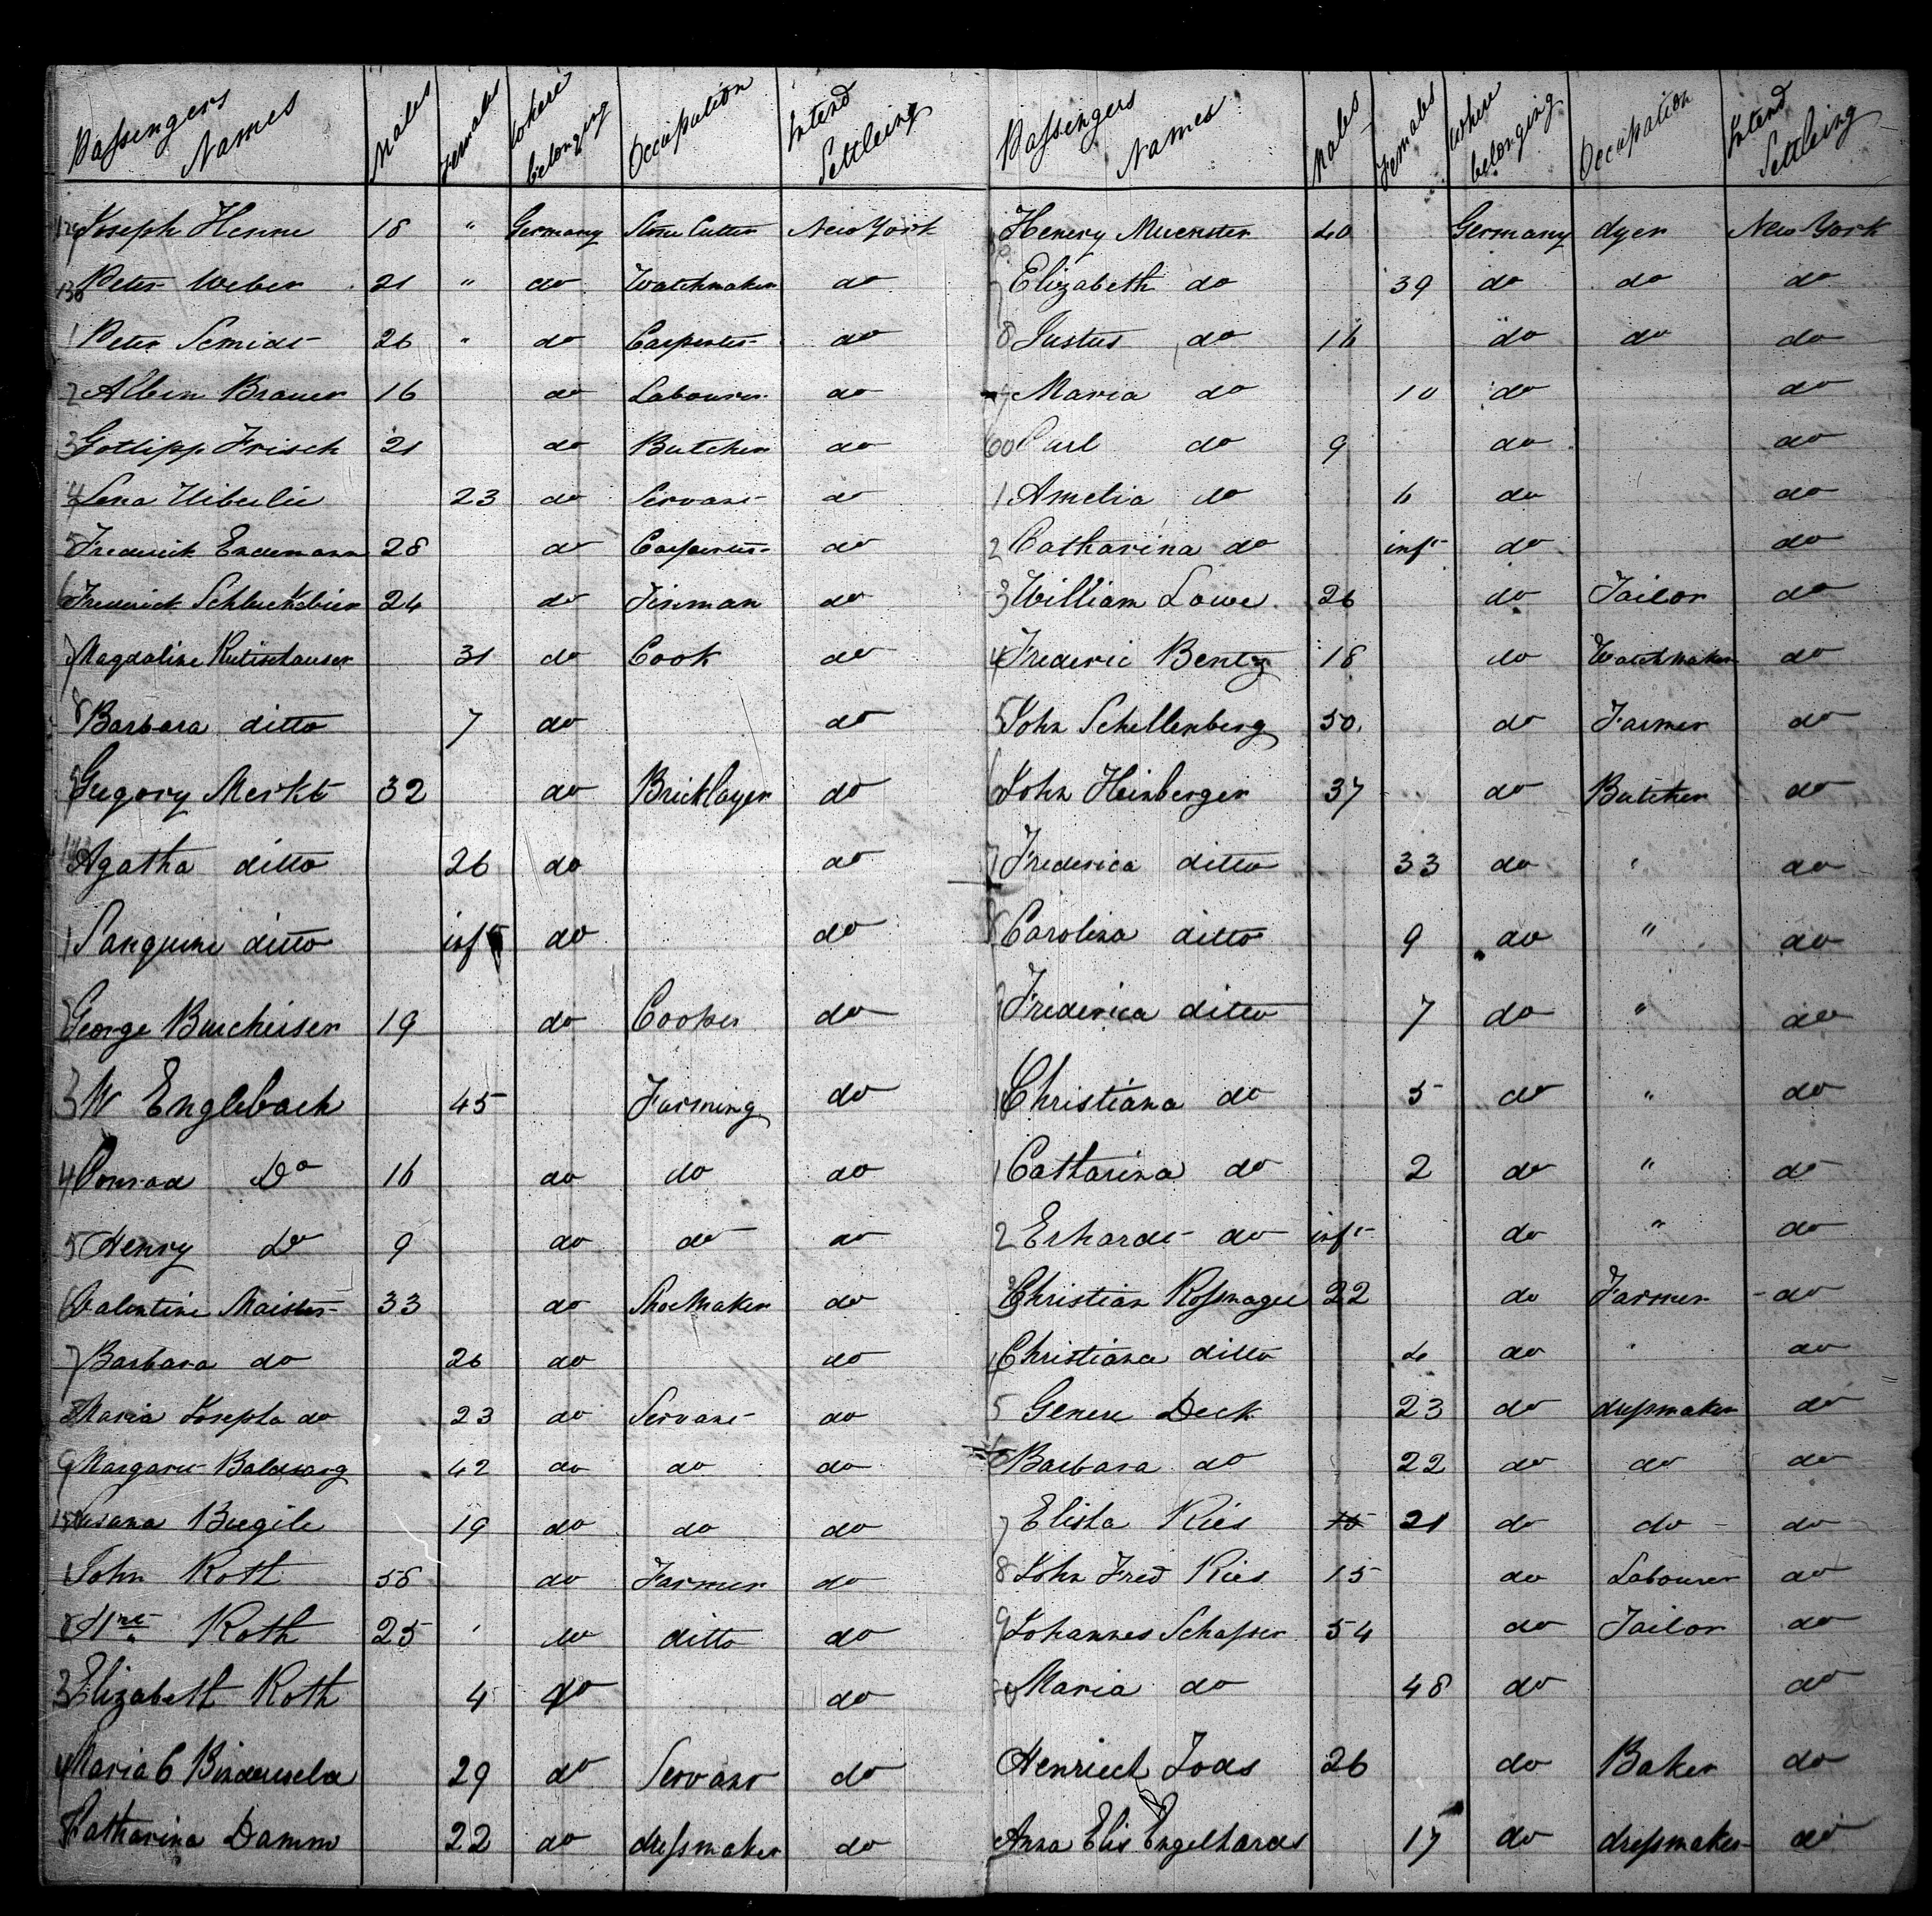 Passengers Names Males Females Where belonging Occupation Intend Settleing
129 Joseph Henne 18 " Germany Stone Cutter New York
130 Peter Weber 21 " do Watchmaker do
1 Peter Scmidt 26 " do Carpenter do
2 Albin Brauer 16 do Labourer do
3 Gottlipp Frisch 21 do Butcher do
4 Lena 23 do Servant do
5 Frederick Endemann 28 do Carpenter do
6 Frederick Schluckebier 24 do Tinman do
7 Magdaline Rutishauser 31 do Cook do
8 Barbara ditto 7 do do
9 Gregory Merkt 32 do Bricklayer do
140 Agatha ditto 26 do do
1 ditto inft do do
2 George 19 do Cooper do
3 W Englebach 45 Farming do
4 Conrad Do 16 do do do
5 Henry Do 9 do do do
6 Valentine Maister 33 do Shoe Maker do
7 Barbara do 26 do do
8 Maria Josepha do 23 do Servant do
9 Margaret 42 do do do
150 Susana Buegile 19 do do do
1 John Roth 58 do Farmer do
2 Roth 25 ' do ditto do
3 Elizabeth Roth 4 do do
4 Maria C 29 do Servant do
5 Catharina Damm 22 do dressmaker do
Passengers Names Males Females Where belonging Occupation Intend Settleing
Henery Muenster 40 Germany dyer New York
7 Elizabeth do 39 do do do
8 Justus do 16 do do do
9 Maria do 10 do do
60 Carl do 9 do do
1 Amelia do 6 do do
2 Catharina do inft do do
3 William Lowe 26 do Tailor do
4 Frederic Bentz 18 do Watchmaker do
5 John Schellenberg 50 do Farmer do
6 John Heinberger 37 do Butcher do
7 Frederica ditto 33 do " do
8 Carolina ditto 9 do " do
9 Frederica ditto 7 do " do
Christiana do 5 do " do
1 Catharina do 2 do " do
2 Erhardt do inft do " do
3 Christian Rossnagel 22 do Farmer do
4 Christiana ditto 4 do " do
5 Deck 23 do dressmaker do
6 Barbara do 22 do do do
7 Elisha Ries 21 do do do
8 John Fred Ries 15 do Labourer do
9 Johannes Schaffner 54 do Tailor do
80 Maria do 48 do do
Henrich Joas 26 do Baker do
Anna Elis Engelhardt 17 do dressmaker do